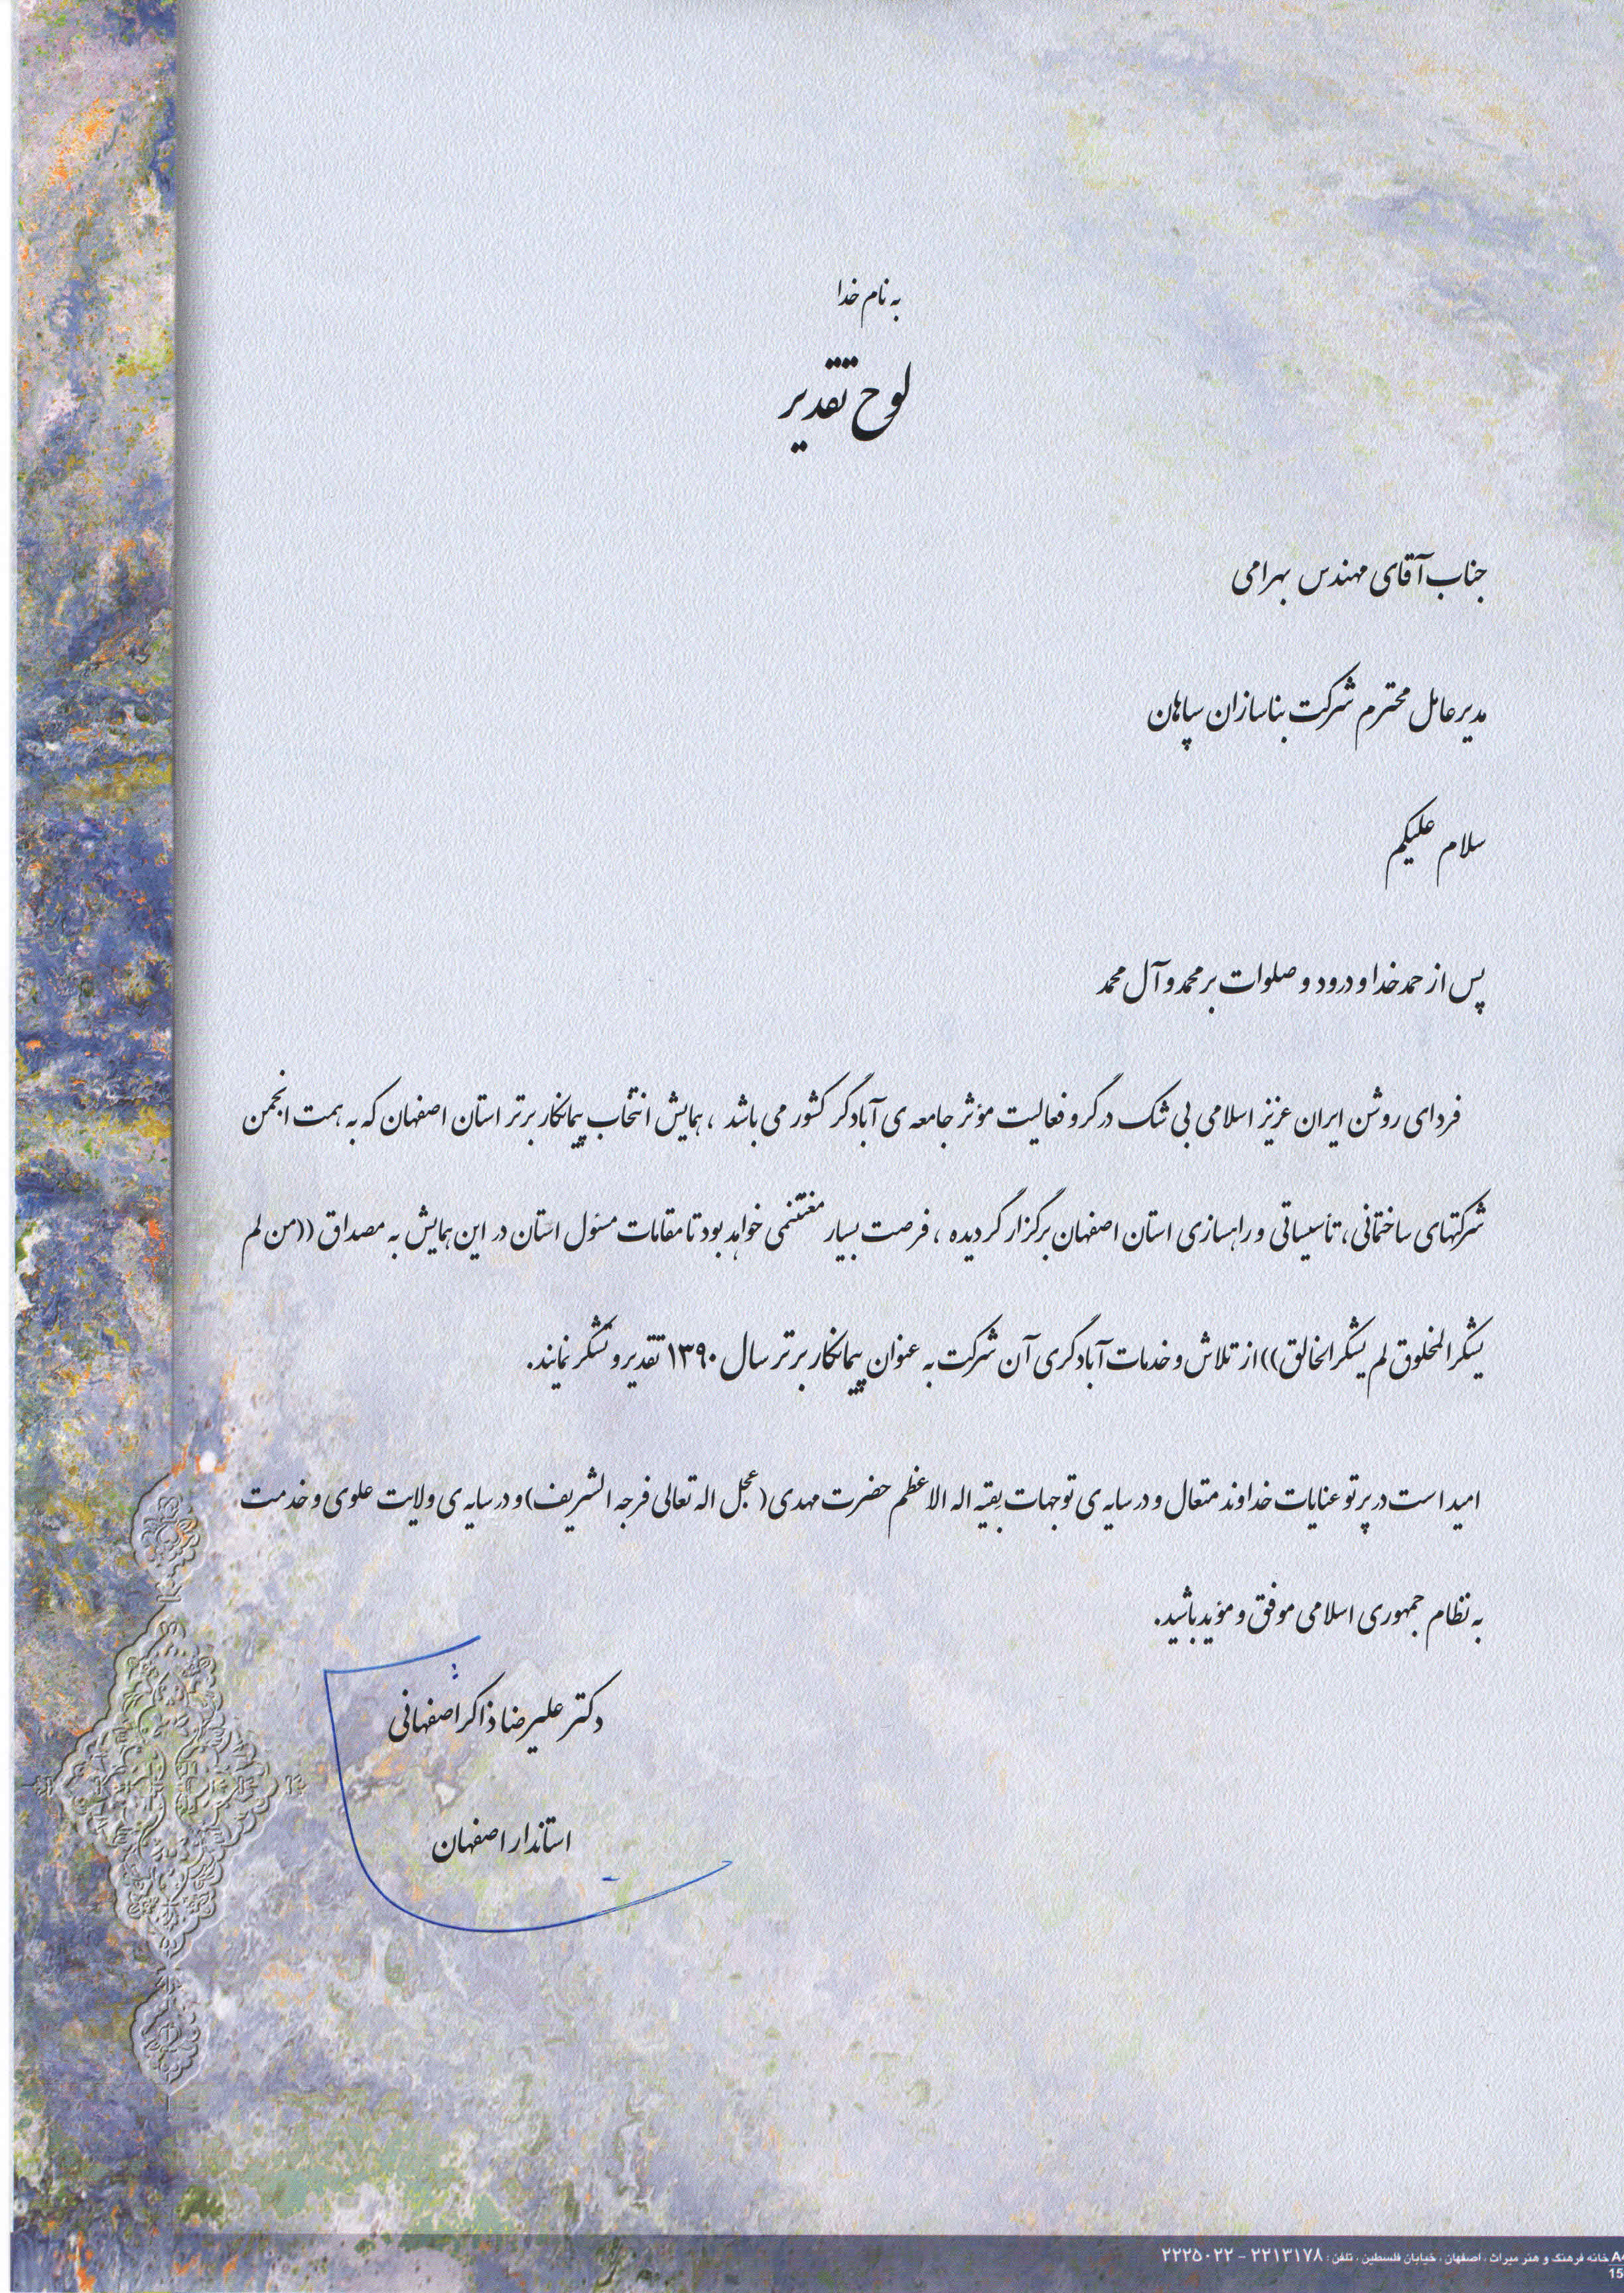 به نام خدا
لوح تقدیر
جناب آقای مهندس بهرامی
مدیرعامل محترم شرکت بناسازان سپاهان
سلام علیکم
پس از حمد خدا و درود و صلوات بر محمد و آل محمد
فردای روشن ایران عزیز اسلامی بی شک در گرو فعالیت مؤثر جامعه ی آبادگر کشور می باشد ، همایش انتخاب پیمانکار برتر استان اصفهان که به همت انجمن
شرکتهای ساختمانی، تأسیساتی و راهسازی استان اصفهان برگزار گردیده ، فرصت بسیار مغتنمی خواهد بود تا مقامات مسئول استان در این همایش به مصداق ((من لم
یشکر المخلوق لم یشکر الخالق)) از تلاش و خدمات آبادگری آن شرکت به عنوان پیمانکار برتر سال ۱۳۹۰ تقدیر و تشکر نمایند.
امید است در پرتو عنایات خداوند متعال و در سایه ی توجهات بقیه اله الاعظم حضرت مهدی (عجل اله تعالی فرجه الشریف) و در سایه ی ولایت علوی و خدمت
به نظام جمهوری اسلامی موفق و مؤید باشید.
دکتر علیرضا ذاکر اصفهانی
استاندار اصفهان
خانه فرهنگ و هنر میراث ، اصفهان ، خیابان فلسطین ، تلفن : ۲۲۱۳۱۷۸ - ۲۲۲۵۰۲۲